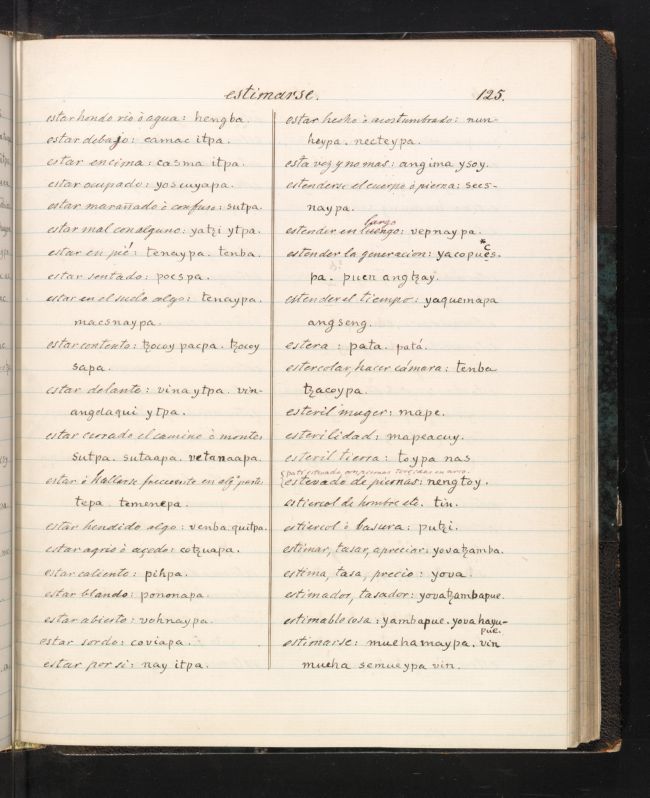 estimarse.
125.
estar hondo rio ò agua: hengba
estar debajo: camac itpa.
estar encima: casma itpa.
estar ocupado: yoscuyapa.
estar marañado ò confuso: sutpa.
estar mal con alguno: yatzi ytpa.
estar en pié: tenaypa. tenba.
estar sentado: pocspa.
estar en el suelo algo: tenaypa.
macsnaypa.
estar contento: tzocoy pacpa. tzocoy
sapa.
estar delante: vinaytpa. vin-
angdaqui ytpa.
estar cerrado el camino ò monte:
sutpa. sutaapa. vetanaapa.
estar ò hallarse frecuente en alg.ª parte:
tepa. temenepa.
estar hendido algo: venba quitpa.
estar agrio ò açedo: cotzuapa.
estar caliente: pihpa.
estar blando: pononapa.
estar abierto: vohnaypa.
estar sordo: coviapa.
estar por si: nay itpa.
estar hecho ò acostumbrado: nun-
heypa. necteypa.
esta vez y no mas: angima ysoy.
estenderse el cuerpo ò pierna: secs-
naypa.
largo
estender en luengo: vepnaypa.
*c
estender la generacion: yacopues.
pa. puen angtzay.
estender el tiempo: yaquemapa
angseng.
estera: pata. patá.
estercolar, hacer cámara: tenba
tzacoypa.
esteril muger: mape.
esterilidad: mapeacuy.
esteril tierra: toypa nas
estevado de piernas: nengtoy.
estiercol de hombre etc. tin.
estiercol ò basura: putzi.
estimar, tasar, apreciar: yovatzamba.
estima, tasa, precio: yova.
estimador, tasador: yovatzambapue.
estimable cosa: yambapue. yova hayu-
pue.
estimarse: muchamaypa. vin
mucha semueypa vin.